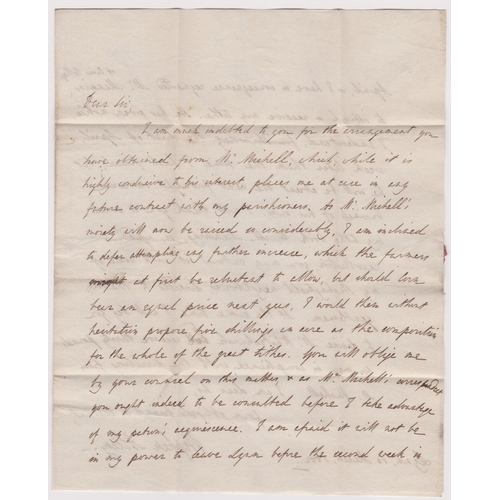 Dear Sir
I am much indebted to you for the arrangement you
have obtained from Mr. Michell, which, while it is
highly conducive to his interest places me at ease in any
future contract with my parishioners. As Mr. Michell's
moiety will now be raised so considerably, I am inclined
to defer attempting any further increase, which the farmers
might at first be reluctant to allow, but should corn
bear an equal price next year, I would then without
hesitation propose five shillings an acre as the composition
for the whole of the great tithes. You will oblige me
by your counsel on this matter, & as Mr. Michell's correspondent
you ought indeed to be consulted before I take advantage
of my patron's acquiescence. I am afraid it will not be
in my power to leave Lynn before the second week in